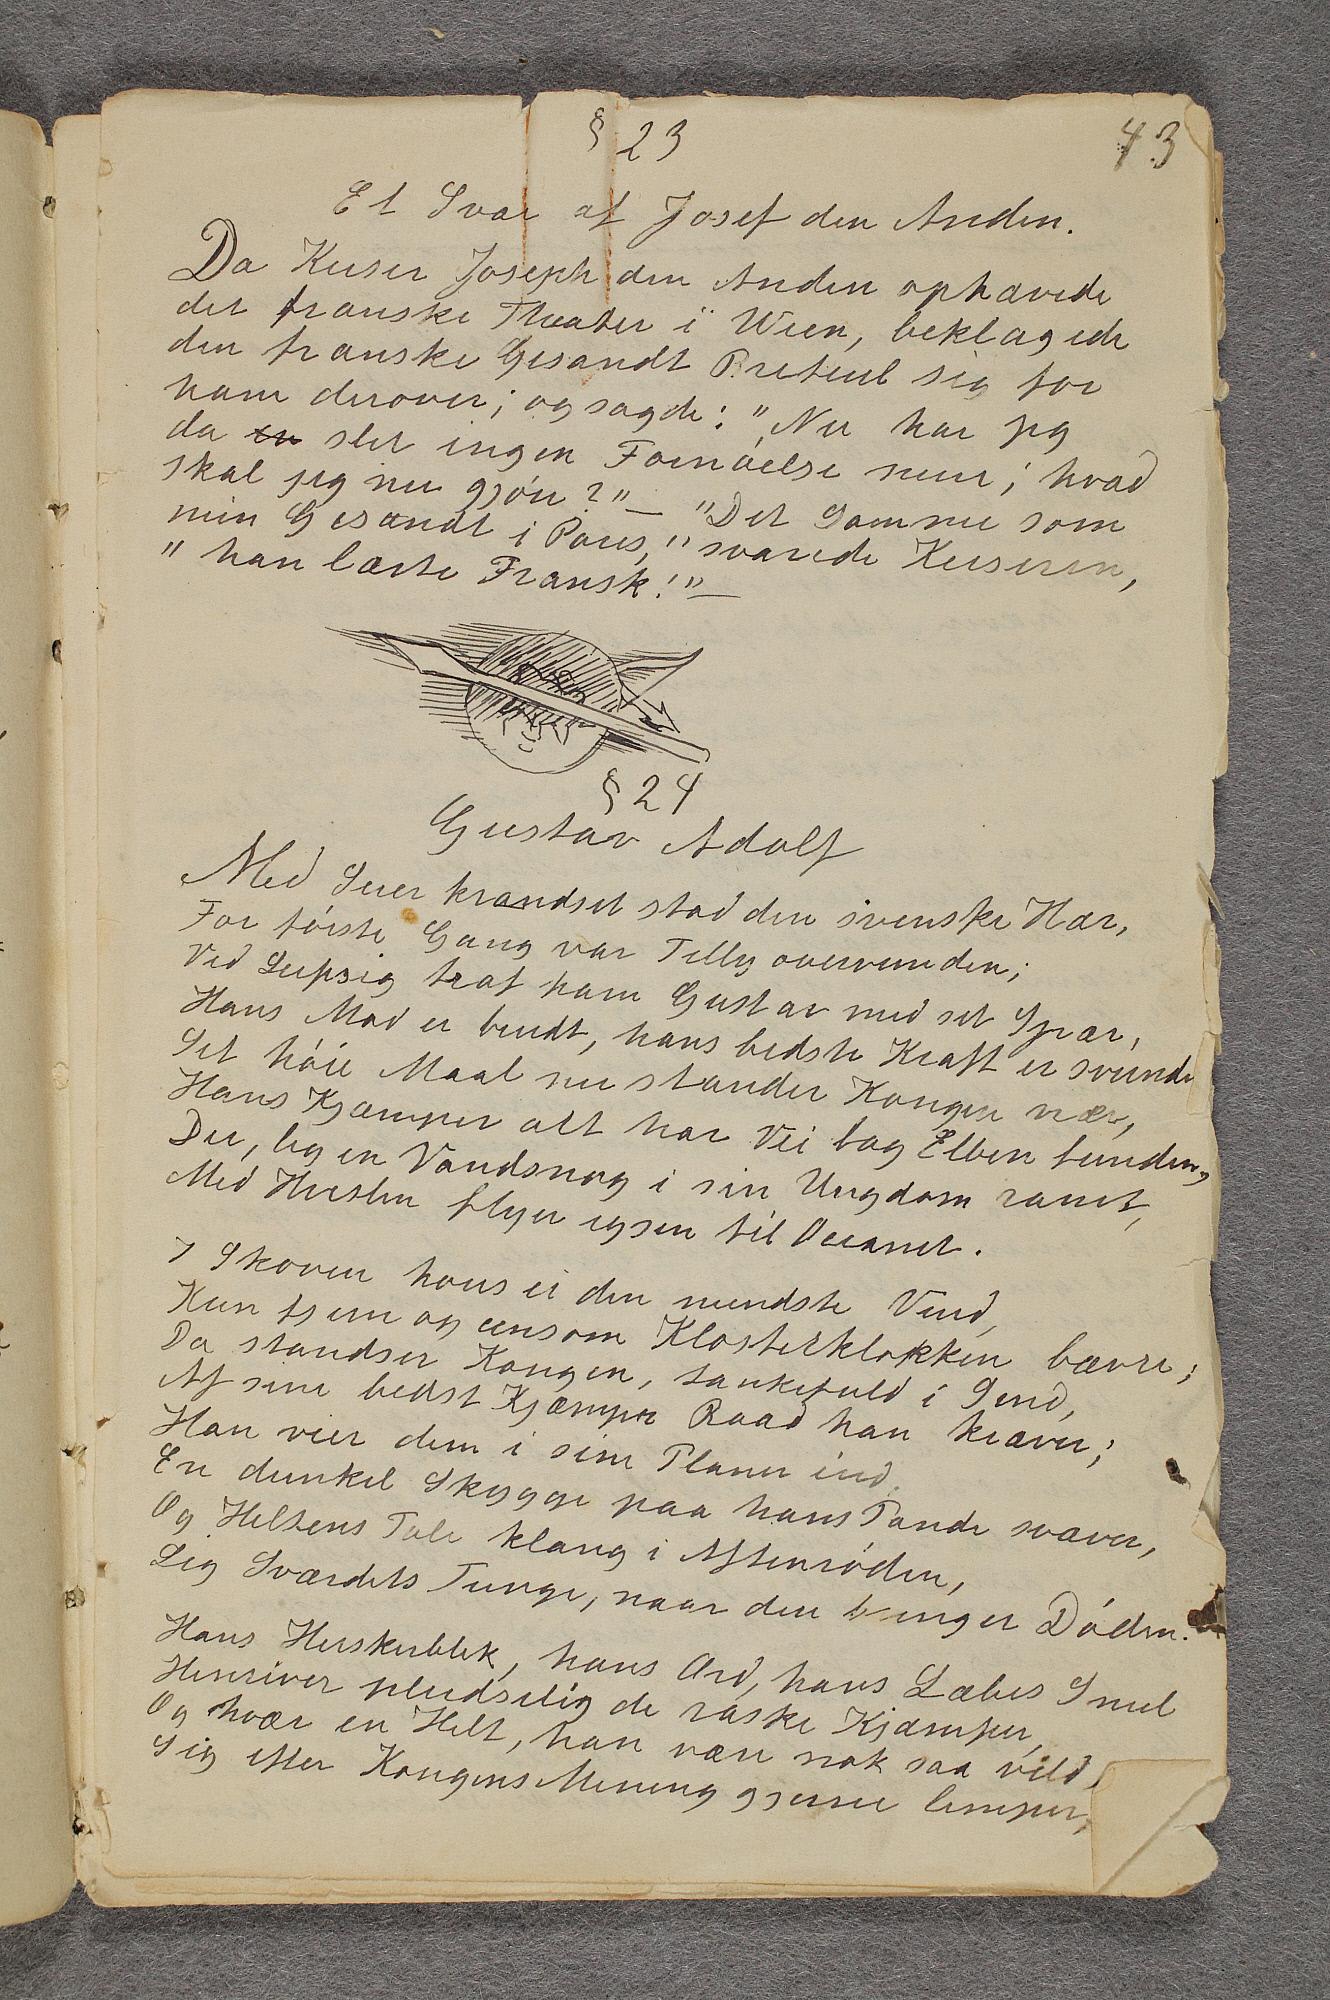 § 23
43
Et Svar af Josef den Anden.
Da Keiser Joseph den Anden ophævede
det franske Theater i Wien, beklagede
den franske Gesandt Breteul sig for
ham derover; og sagde: "Nu har jeg
da en slet ingen Fornöielse mere; hvad
skal jeg nu gjöre?"— "Det samme som
min Gesandt i Paris," svarede Keiseren,
"han lærte Fransk!"—
§ 24
Gustav Adolf
Med Seier krandset stod den svenske Hær,
For förste Gang var Tilly overvunden;
Ved Leipzig traf ham Gustav med sit Spær,
Hans Mod er bendt, hans bedste Kraft er svunde
Sit höie Maal nu stander Kongen nær,
Hans Kjæmper alt har Vei bag Elben funden,
Der, lig en Vandsnog i sin Ungdom ranet,
Med Hvislen flyer igjen til Oceanet.
I Skoven höres ei den mindste Vind,
Kun fjern og eensom Klosterklokken bæver;
Da standser Kongen, tankefuld i Sind,
Af sine bedst Kjæmper Raad han kræver;
Han vier dem i sine Planer ind.
En dunkel Skygge paa hans Pande svæver,
Og Heltens Tale klang i Aftenröden,
Lig Sværdets Tunge, naar den bringer Döden.
Hans Herskerblik, hans Ord, hans Læbes Smil
Henriver pludselig de raske Kjæmper,
Og hvær en Helt, han være nok saa vild,
Sig efter Kongens Mening gjerne lemper,